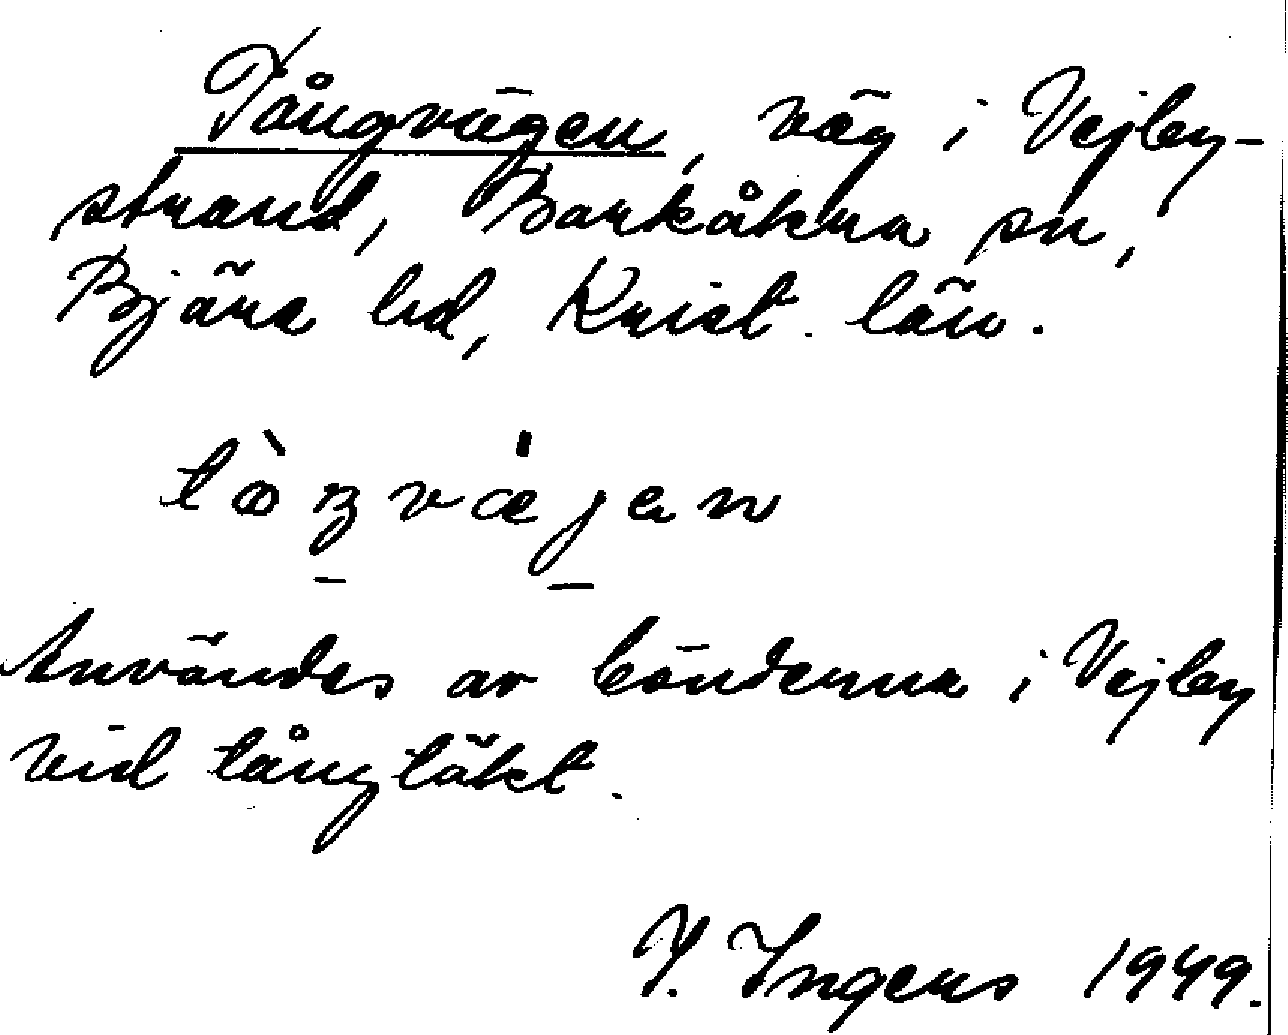 Tångvägen, väg i Vejby-
strand, Barkåkra sn,
Bjäre hd, Krist. län.
Användes av bönderna i Vejby
vid tångtäkt.
I. Ingers 1949.